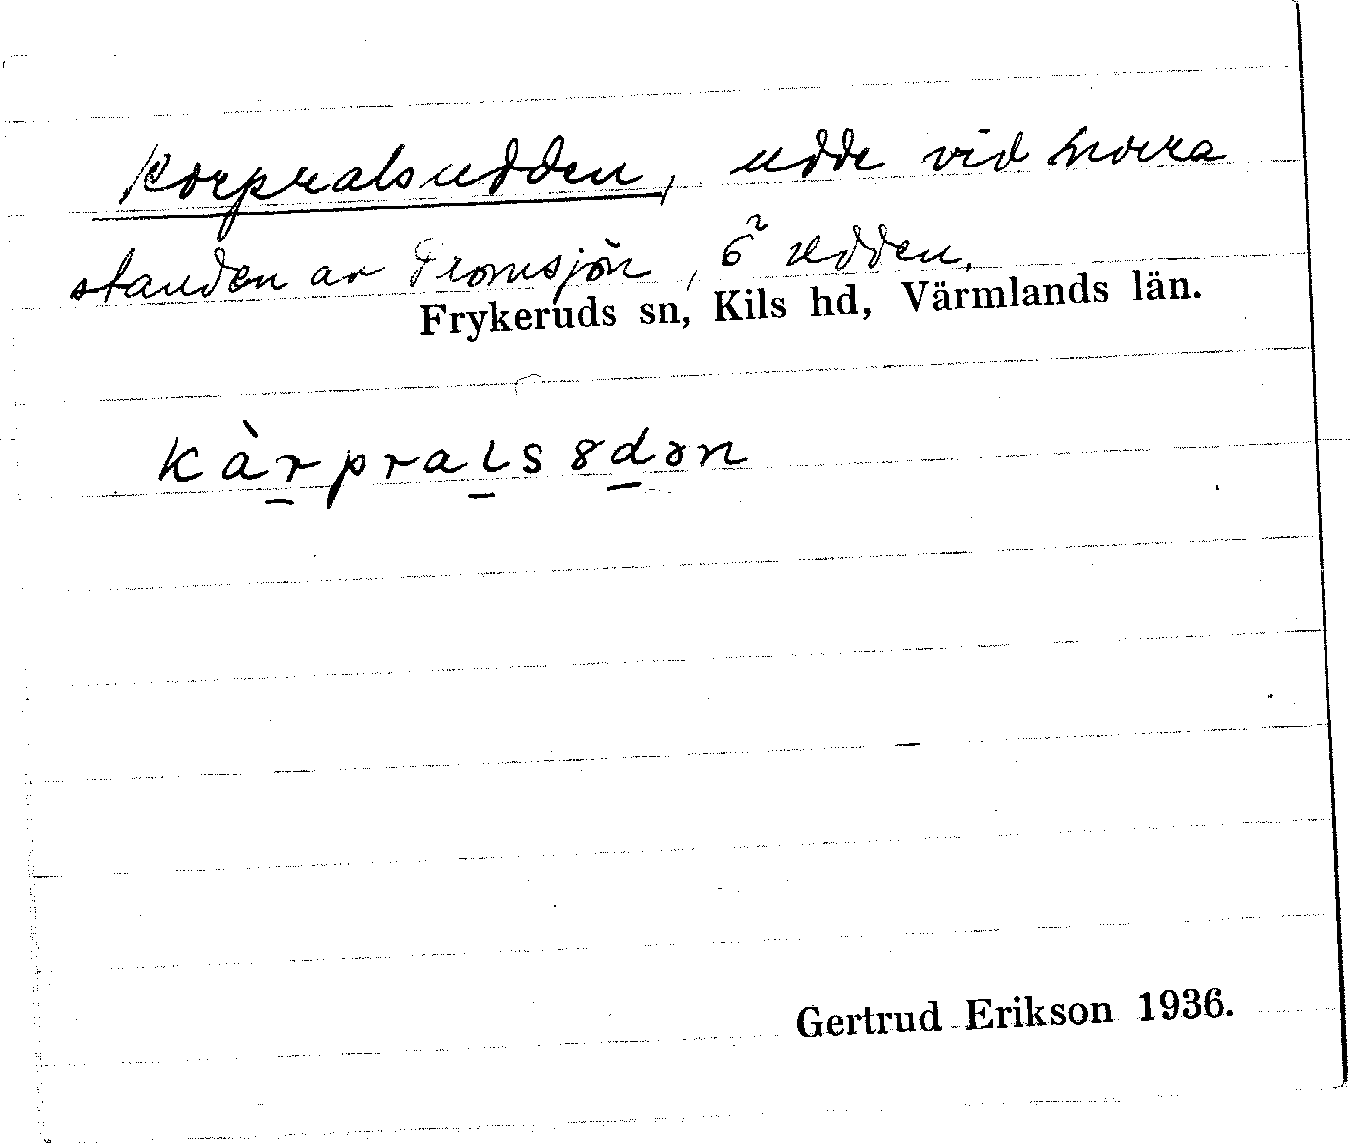 Korpralsudden, udde vid norra
standen av Tromsjön, 6² Udden.
Frykeruds sn, Kils hd, Värmlands län.
kàrpralsȣdən
Gertrud Erikson 1936.